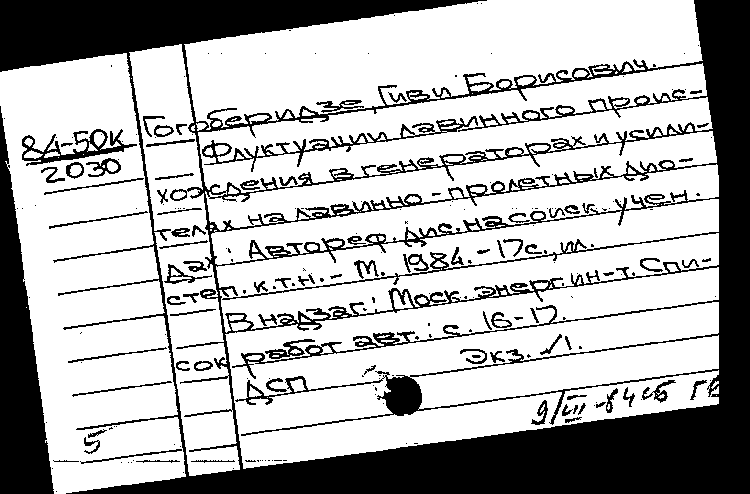 84-50к
2030
Гогоберидзе, Гиви Борисович.
Флуктуации лавинного проис-
хождения в генераторах и усили-
телях на лавинно-пролетных дио-
дах: Автореф. дис. на соиск. учен.
степ. к.т.н. - М., 1984. - 17с., ил.
В надзаг.: Моск. энерг. ин-т. Спи-
сок работ авт.: с. 16-17.
ДСП Экз. √1.
5
9/III-84